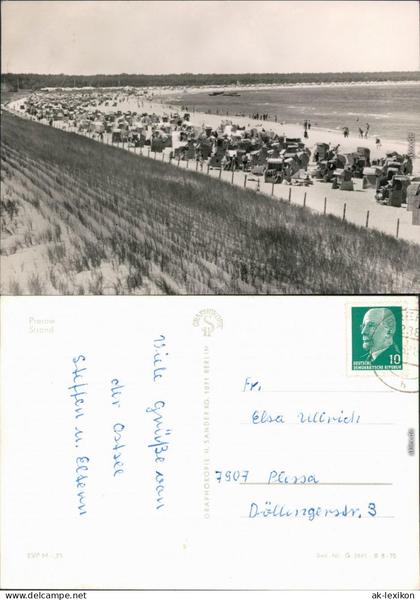 Prerow
Strand
Viele Grüße von
der Ostsee
Steffen u. Eltern
GRAPHOKOPIE
GRAPHOKOPIE H. SANDER KG. 1071 BERLIN
10
DEUTSCHE
DEMOKRATISCHE REPUBLIK
Fr.
Elsa Ullrich
7907 Plessa
Döllingerstr. 3
EVP M -,25
Preview
www.ak-lexikon.de
ak-lexikon